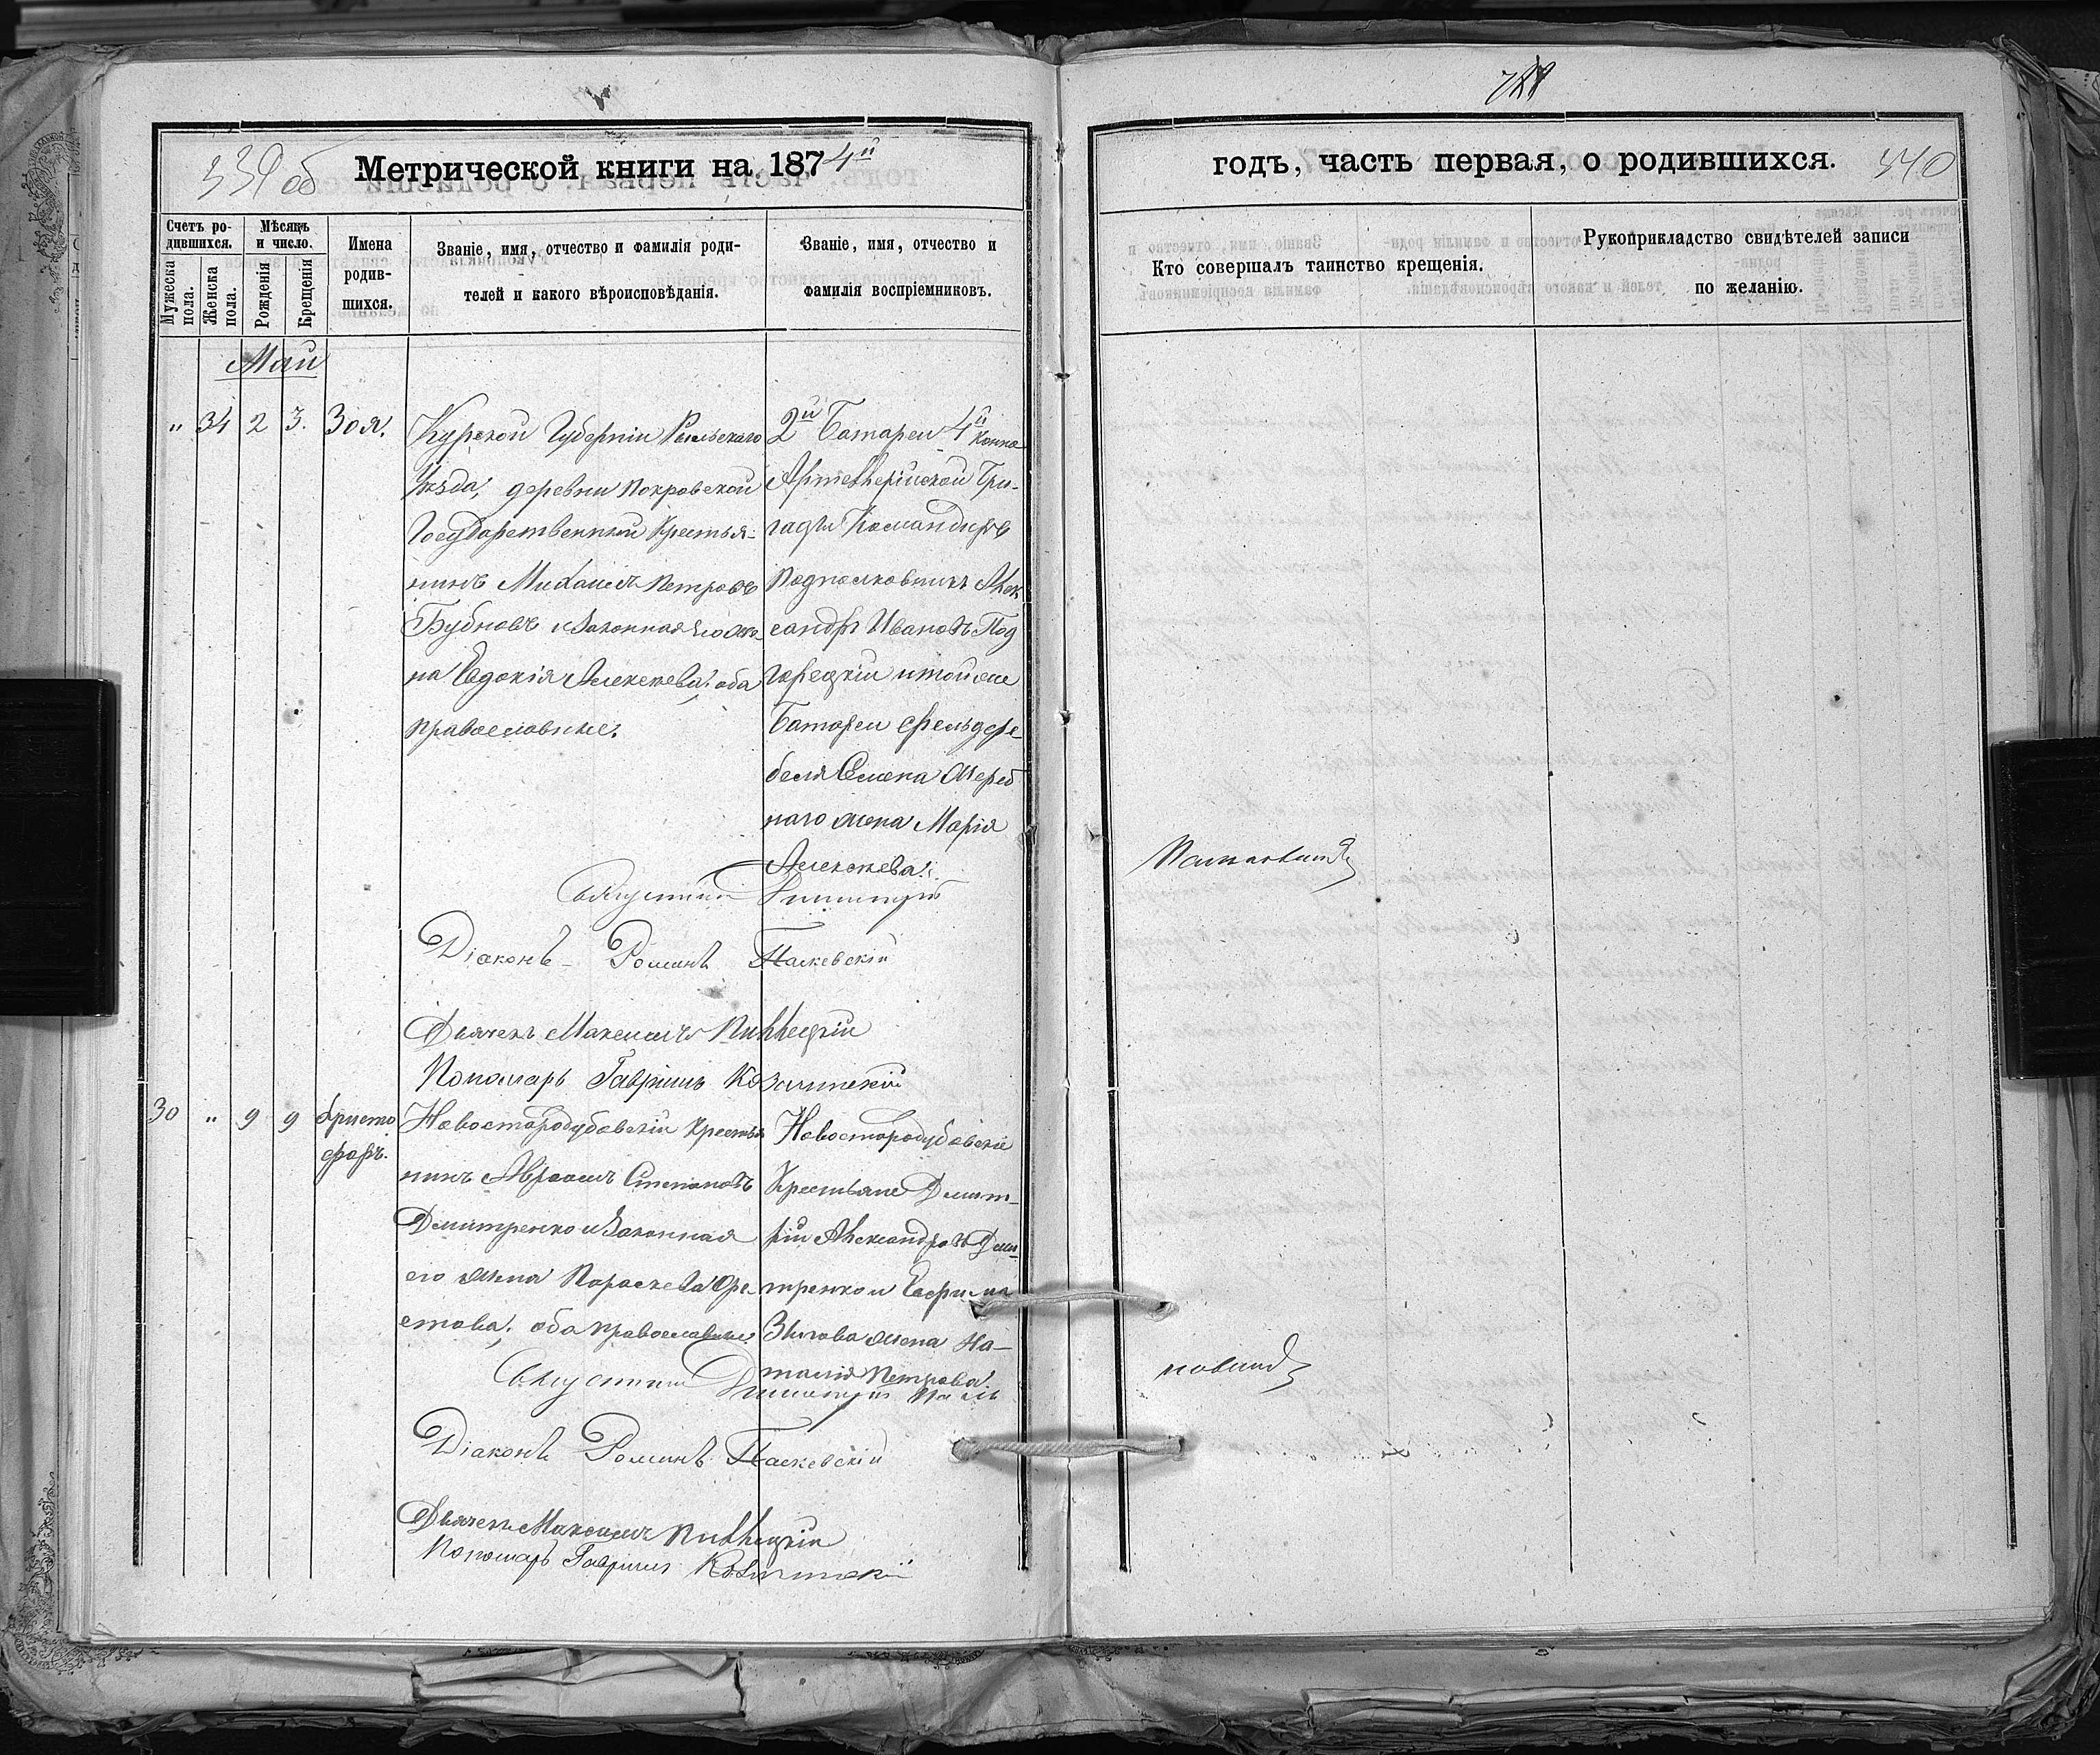 339 об
Метрической книги на 1874й
годъ, часть первая, о родившихся.
340
Счетъ ро-
дившихся.
Мѣсяцъ
и число.
Мужеска
пола.
Женска
пола.
Рожденія
Крещенія
Имена
родив-
шихся.
Званіе, имя, отчество и фамилія роди-
телей и какого вѣроисповѣданія.
Званіе, имя, отчество и
фамилія воспріемниковъ.
Кто совершалъ таинство крещенія.
Рукоприкладство свидѣтелей записи
по желанію.
Май
" 34 2 3. Зоя.
Курской Губерніи Рыльскаго
Уѣзда, деревни Покровской
Государственный Крестья-
нинъ Михаилъ Петровъ
Бубновъ и Законная его же-
на Евдокія Алексѣева, оба
православные.
2й Батареи 4й Конно
Артеллерійской Бри-
гады Командиръ
Подполковникъ Алек
сандръ Ивановъ Под
горецкій и той же
Батареи Фельдфе
беля
наго жена Марія
Алексѣева.
Священникъ Димитрій
Діаконъ Романъ Паскевскій
Дьячекъ Максимъ
Пономарь Гавріилъ
30 " 9 9 Христо
форъ.
Новостародубовскій Крестья
нинъ Авраамъ Степановъ
Дмитренко и Законная
его жена Параскева Оре-
стова, оба православные.
Новостародубовскіе
Крестьяне Димит-
рій Александровъ Дми-
тренко и Евфима
жена На-
талія Петрова
Священникъ Димитрій
новичъ
Діаконъ Романъ Паскевскій
Дьячекъ Максимъ
Пономарь Гавріилъ